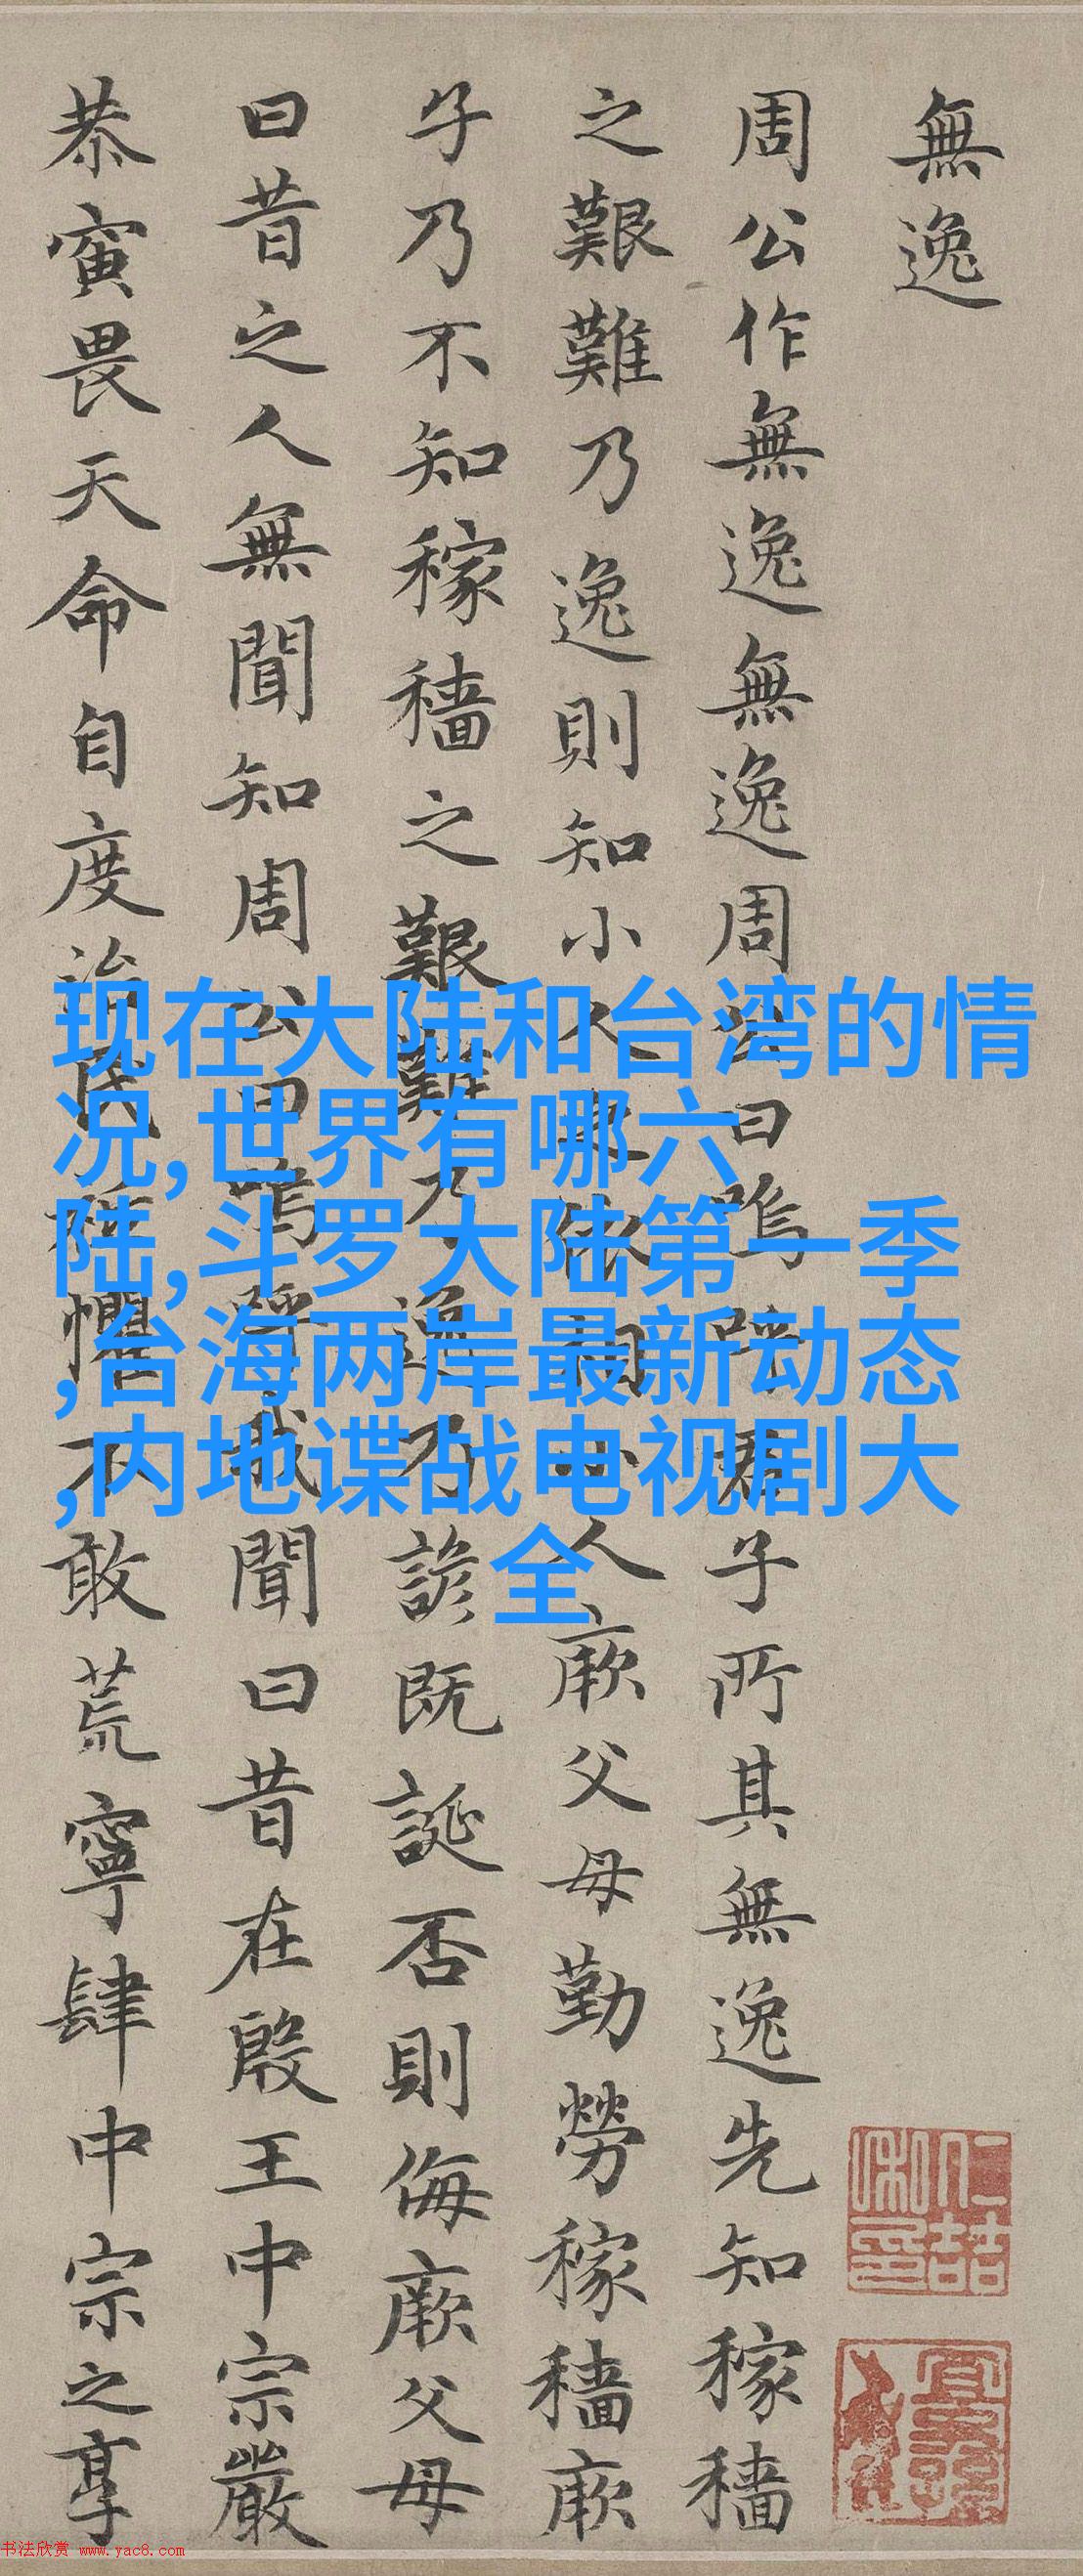 無逸
周公作無逸無逸周公曰嗚呼君子所其無逸先知稼穡
之艱難乃逸則知小人之依相小人厥父母勤勞稼穡厥
子乃不知稼穡之艱難乃逸乃諺既誕否則侮厥父母
曰昔之人無聞知周公曰嗚呼我聞曰昔在殷王中宗嚴
恭寅畏天命自度治民祗懼不敢荒寧肆中宗之享
现在大陆和台湾的情
况,世界有哪六
陆,斗罗大陆第一季
,台海两岸最新动态
,内地谍战电视剧大
全
书法欣赏 www.yac8.com